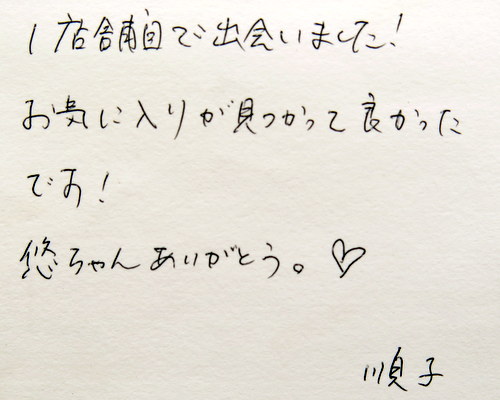 1店舗目で出会いました!
お気に入りが見つかって良かった
です!
悠ちゃんありがとう。♡
順子